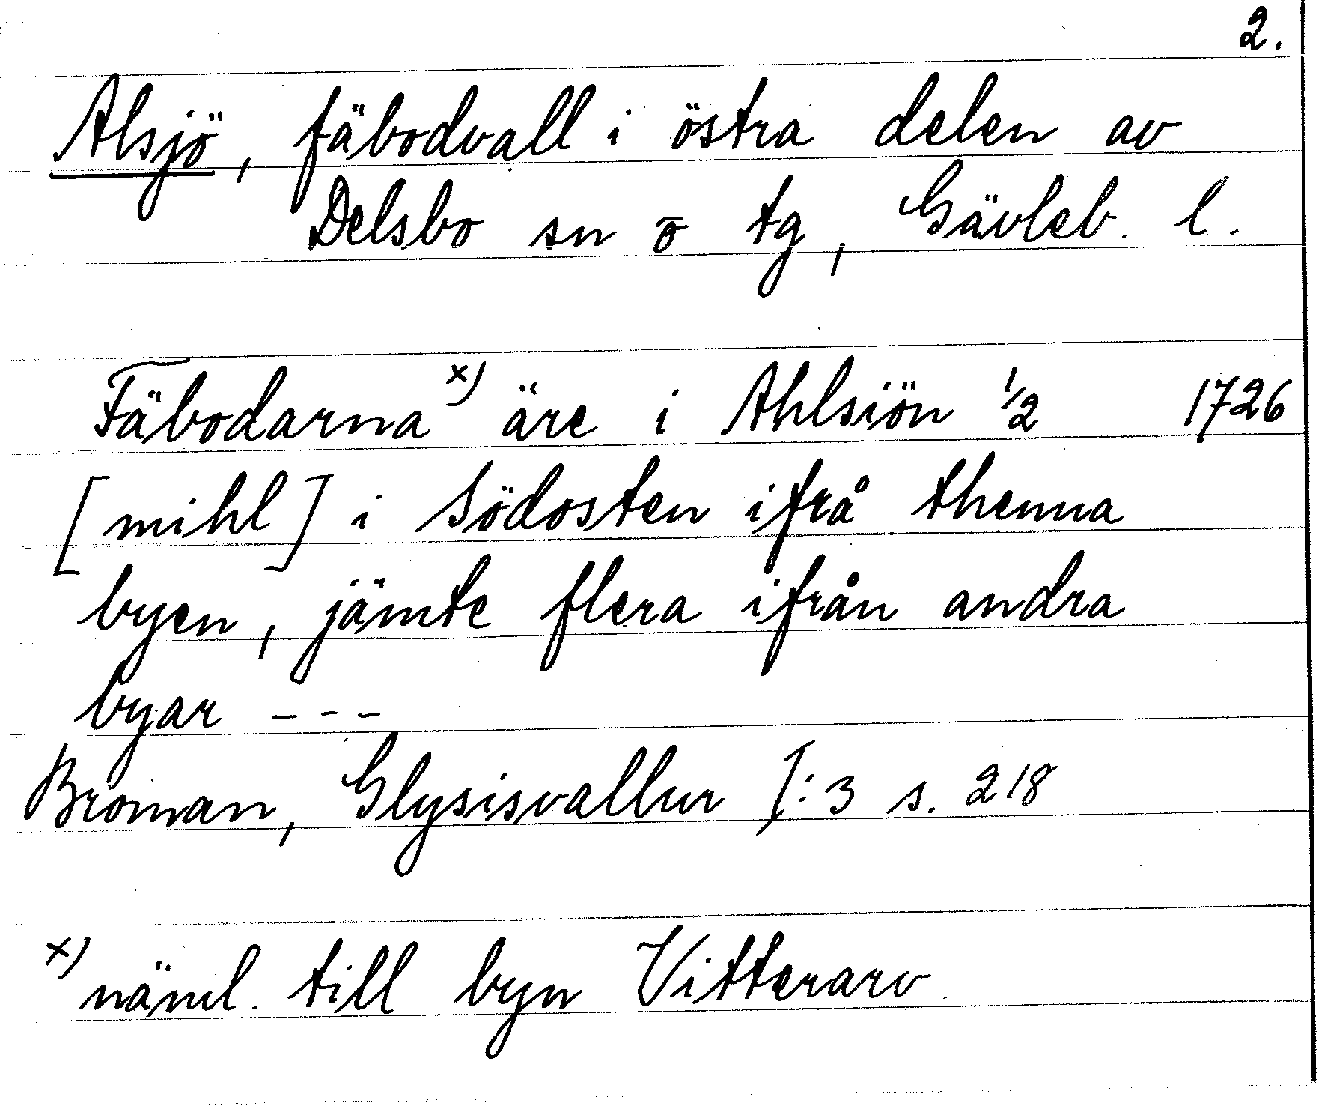 2.
Alsjö, fäbodvall i östra delen av
Delsbo sn o tg, Gävleb. l.
Fäbodarna x) äre i Ahlsiön 1/2 1726
[mihl] i Södosten ifrå thenna
byen, jämte flera ifrån andra
byar ---
Broman, Glysisvallur I:3 s. 218
x) näml. till byn Vitterarv